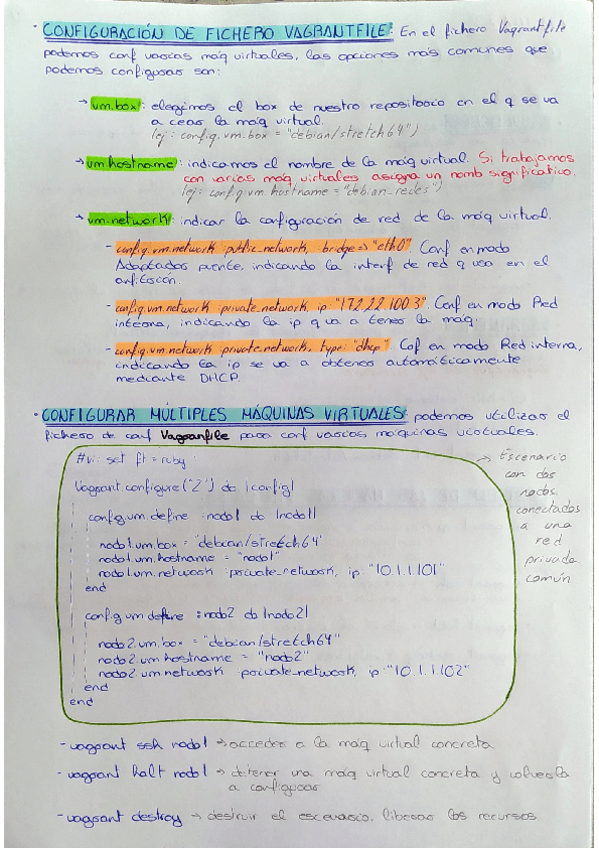 · CONFIGURACIÓN DE FICHERO VAGRANTFILE: En el fichero Vagrantfile
podemos conf varias máq virtuales, las opciones más comunes que
podemos configurar son:
→ vm.box: elegimos el box de nuestro repositorio en el q se va
a crear la máq virtual.
(ej: config.vm.box = "debian/stretch64")
→ vm.hostname: indicamos el nombre de la máq virtual. Si trabajamos
con varias máq virtuales asigna un nomb significativo.
(ej: config.vm.hostname = "debian_redes")
→ vm.network: indicar la configuración de red de la máq virtual.
- config.vm.network :public_network, :bridge=> "eth0" Conf en modo
Adaptador puente, indicando la interf de red q usa en el
anfitrión.
- config.vm.network :private_network, ip: "172.22.100.3" Conf en modo Red
interna, indicando la ip q va a tener la máq.
- config.vm.network :private_network, type: "dhcp" Cof en modo Red interna,
indicando la ip se va a obtener automáticamente
mediante DHCP.
· CONFIGURAR MÚLTIPLES MÁQUINAS VIRTUALES: podemos utilizar el
fichero de conf Vagranfile para conf varias máquinas virtuales.
#vi: set ft=ruby :
Vagrant.configure("2") do |config|
config.vm.define :nodo1 do |nodo1|
nodo1.vm.box = "debian/stretch64"
nodo1.vm.hostname = "nodo1"
nodo1.vm.network :private_network, ip: "10.1.1.101"
end
config.vm.define :nodo2 do |nodo2|
nodo2.vm.box = "debian/stretch64"
nodo2.vm.hostname = "nodo2"
nodo2.vm.network :private_network, ip: "10.1.1.102"
end
end
→ Escenario
con dos
nodos,
conectados
a una
red
privada
común
- vagrant ssh nodo1 → acceder a la máq virtual concreta
- vagrant halt nodo1 → detener una máq virtual concreta y volverla
a configurar
- vagrant destroy → destruir el escenario, liberar los recursos.